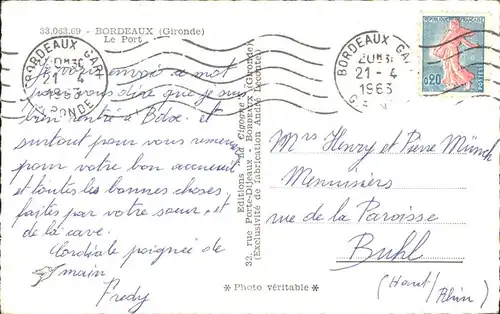 33.063.69 - BORDEAUX (Gironde)
Le Port
BORDEAUX GARE
20H30
21 - 4
1963
GIRONDE
BORDEAUX GA
20H30
21 - 4
1963
REPUBLIQUE FRANÇAISE
0,20
POSTES
Je vous envoi ce mot
pour vous dire que je suis
bien rentré à Bdx. et
surtout pour vous remercier
pour votre bon accueuil
et toutes les bonnes choses
faites par votre soeur, et
de la cave.
Cordiale poignée de
main
Fredy
Editions "La Cigogne"
32, rue Porte-Dijeaux - BORDEAUX (Gironde)
(Exclusivité de fabrication André Leconte)
* Photo véritable *
Mrs Henry et Pierre Münch
Menuisiers
rue de la Paroisse
Buhl
(Haut/
Rhin)